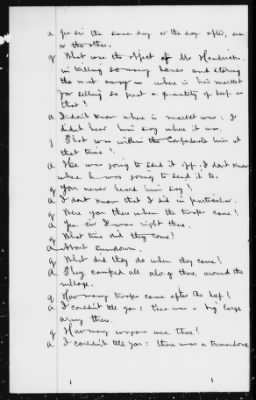 a Yes sir the same day or the day after, one
or the other.
q What was the object of Mr Hendricks
in killing so many beeves and storing
the meat away where is his market
for selling so great a quantity of beef as
that?
a I didn't know where is market was: I
didn't hear him say where it was.
q That was within the Confederate lines at
that time?
a He was going to send it off: I don't know
where he was going to send it to.
q You never heard him say?
a I don't know that I did in particular.
q Were you there when the troops came?
a Yes sir I was right there.
q What time did they come?
a About sundown.
q What did they do when they came?
a They camped all along there, around the
village.
q How many troops came after the beef?
a I couldn't tell you: there was a big large
army there.
q How many wagons were there?
a I couldn't tell you: there was a tremendous